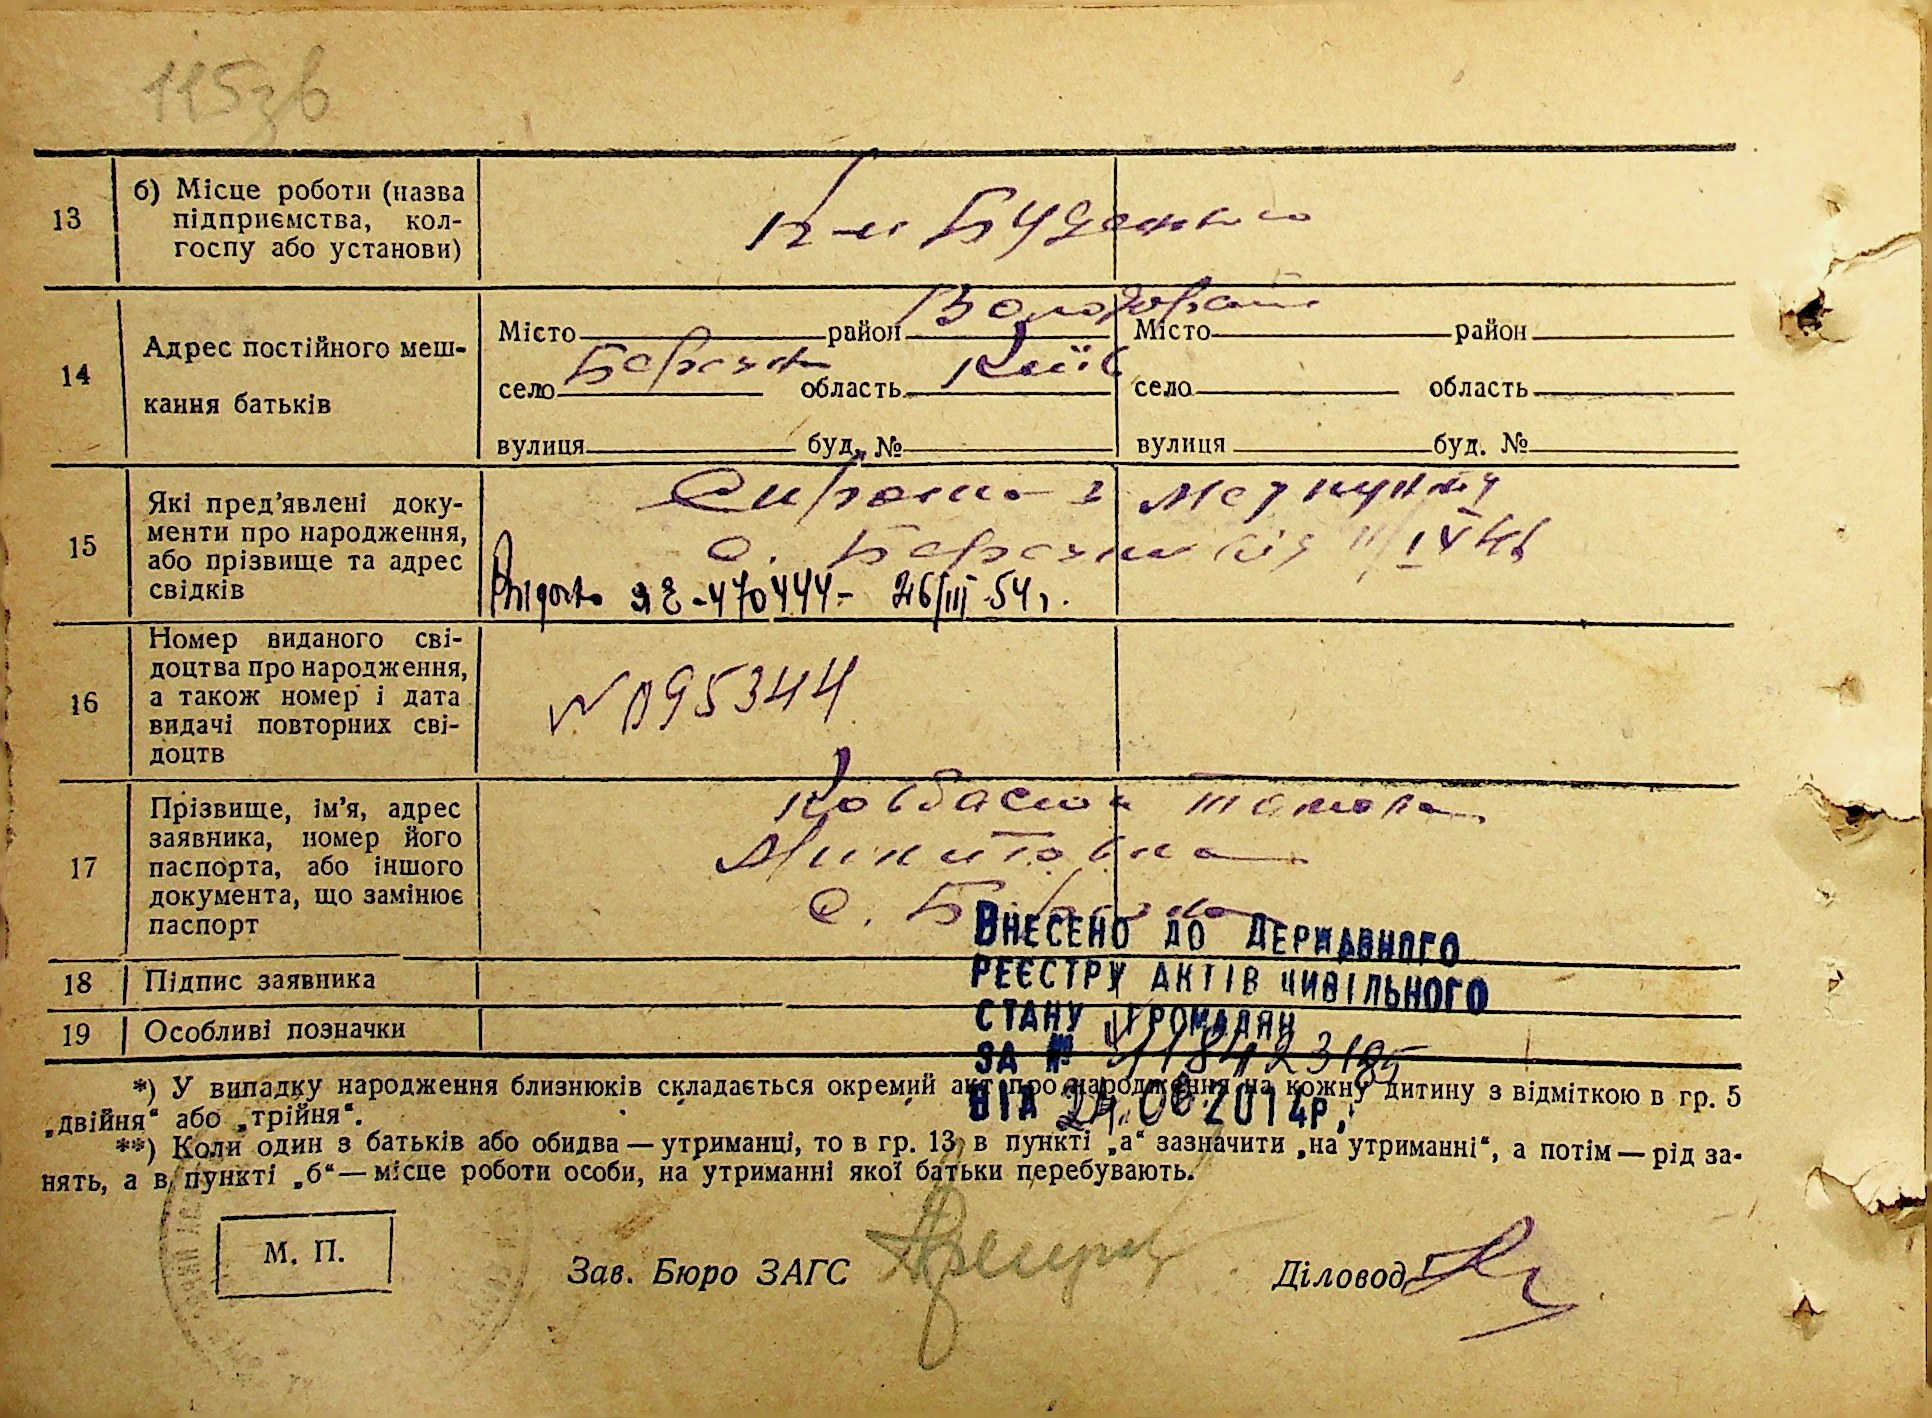 115зв
13 б) Місце роботи (назва
підприємства, кол-
госпу або установи)
К-п Буденного
14 Адрес постійного меш-
кання батьків
Місто район Володарськ Місто район
село Березна область Київ село область
вулиця буд. № вулиця буд. №
15 Які пред'явлені доку-
менти про народження,
або прізвище та адрес
свідків
з Медпункту
с. Березна від IV
ЯЕ-470444- 26/III 54 г.
16 Номер виданого сві-
доцтва про народження,
а також номер і дата
видачі повторних сві-
доцтв
№ 095344
17 Прізвище, ім'я, адрес
заявника, номер його
паспорта, або іншого
документа, що замінює
паспорт
Ковбасюк
Микитовна
с. Березна
18 Підпис заявника
19 Особливі позначки
ВНЕСЕНО ДО ДЕРЖАВНОГО
РЕЄСТРУ АКТІВ ЦИВІЛЬНОГО
СТАНУ ГРОМАДЯН
ЗА №
ВІД 24.06.2014р.
*) У випадку народження близнюків складається окремий акт про народження на кожну дитину з відміткою в гр. 5
„двійня“ або „трійня“.
**) Коли один з батьків або обидва — утриманці, то в гр. 13, в пункті „а“ зазначити „на утриманні“, а потім — рід за-
нять, а в пункті „б“ — місце роботи особи, на утриманні якої батьки перебувають.
М. П.
Зав. Бюро ЗАГС Діловод